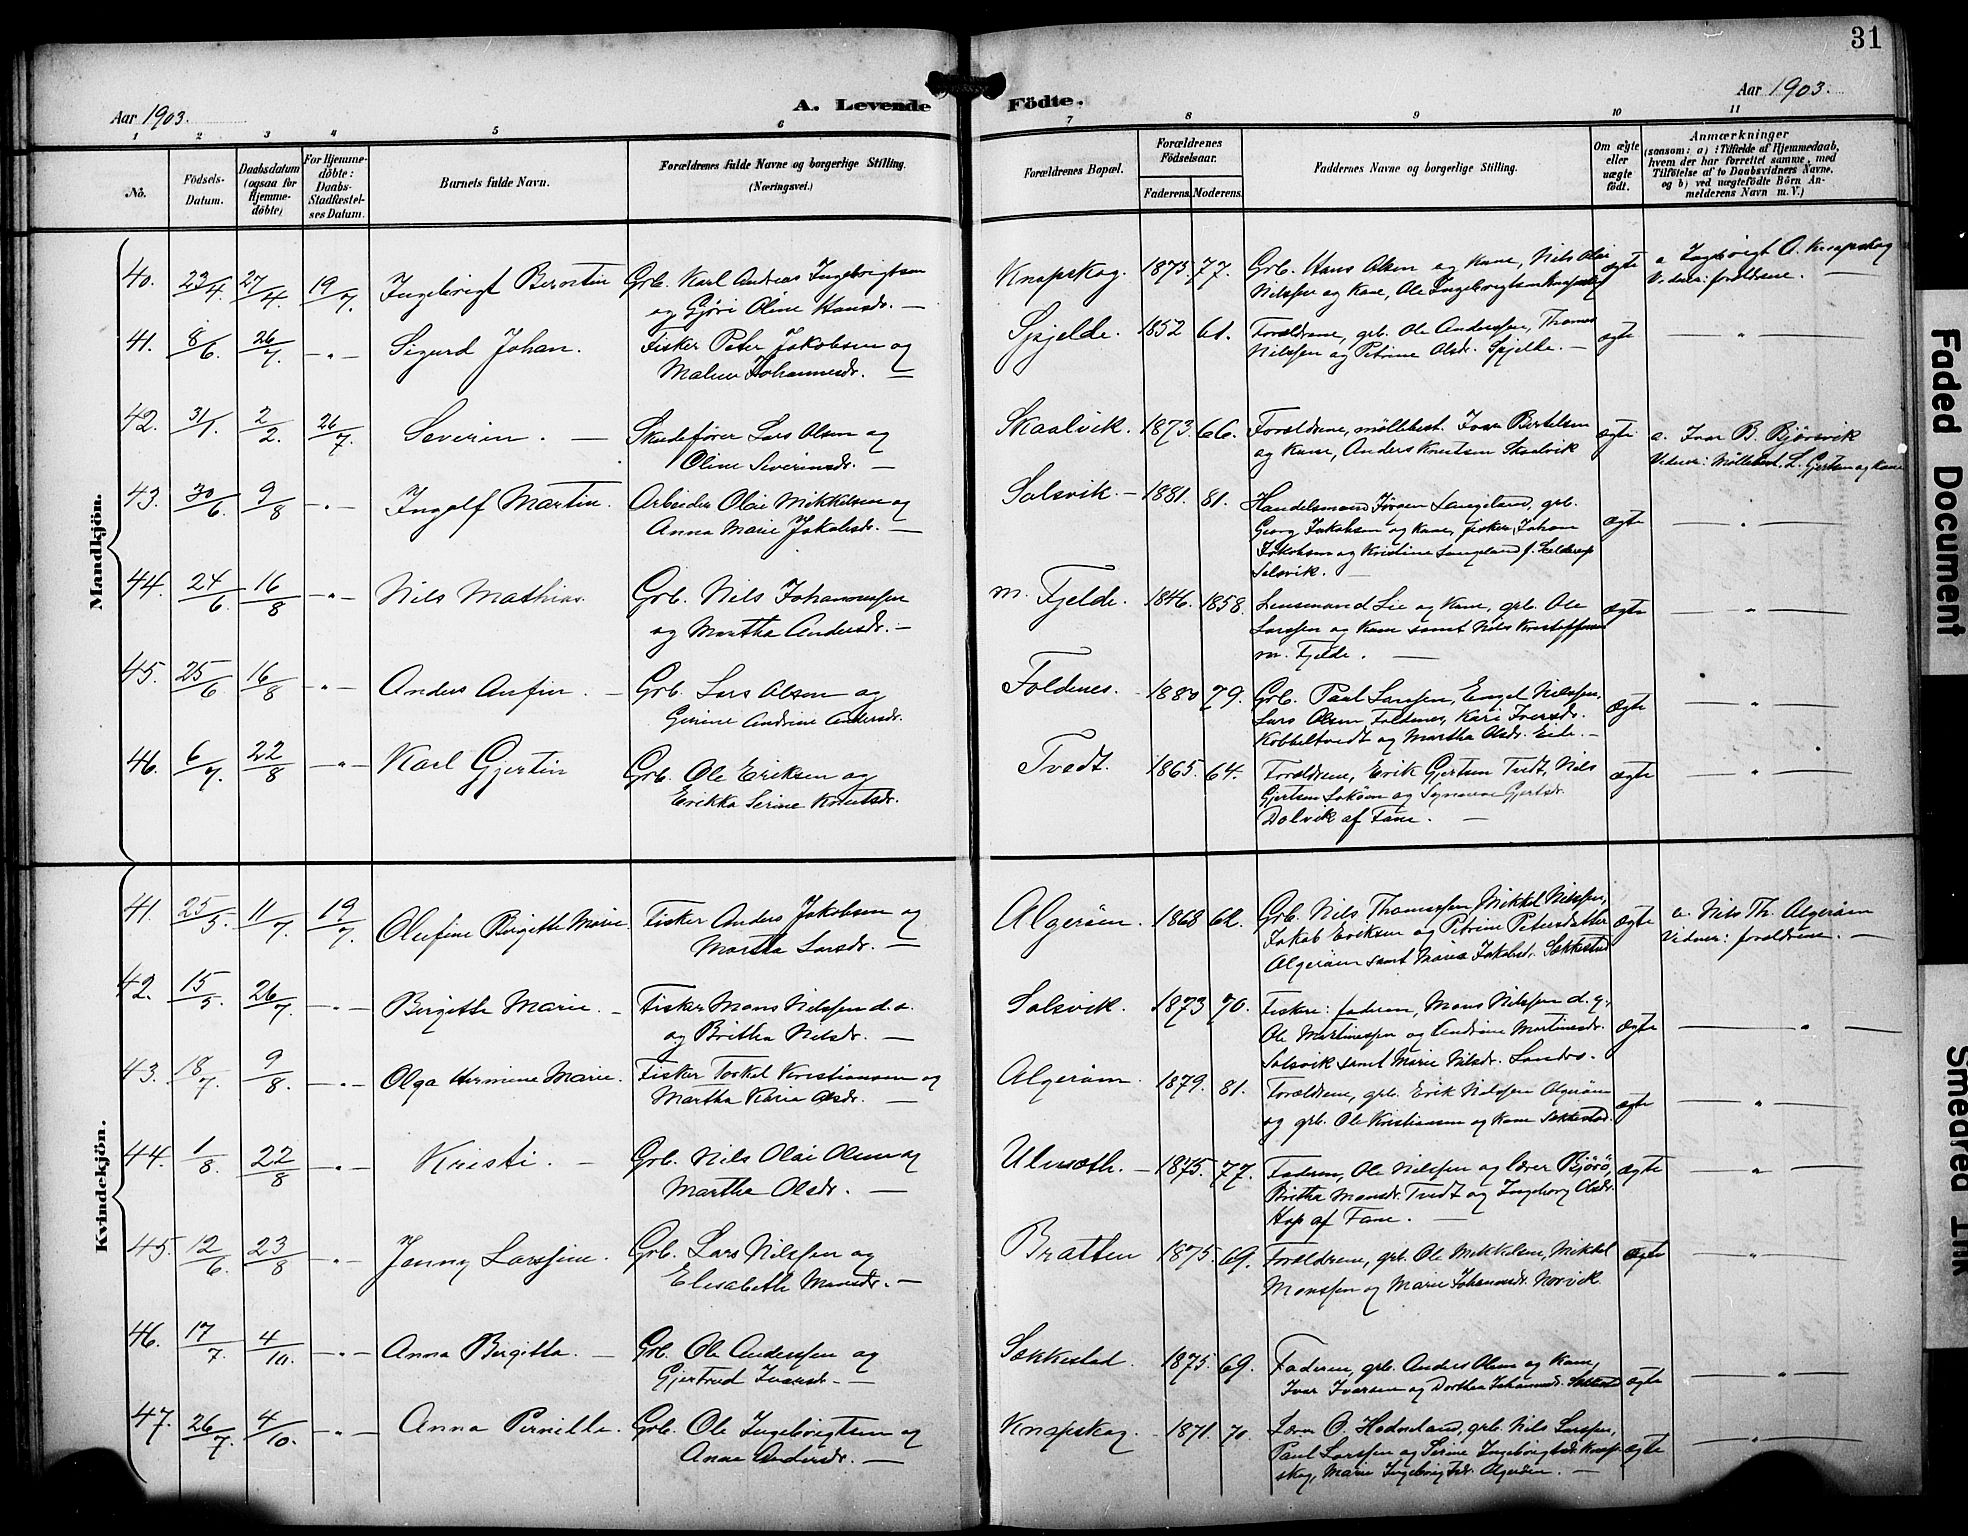 31
Aar 1903.
A. Levende Födte.
Aar 1903.
1 2 3 4 5 6 7 8 9 10 11
No. Födsels-Datum. Daabsdatum (ogsaa for Hjemme-döbte) For Hjemme-döbte: Daabs-Stadfæstel-ses Datum. Barnets fulde Navn. Forældrenes fulde Navne og borgerlige Stilling. (Næringsvei.) Forældrenes Bopæl. Forældrenes Födselsaar. Faderens. Moderens. Faddernes Navne og borgerlige Stilling. Om ægte eller uægte födt. Anmærkninger (saasom: a) i Tilfælde af Hjemmedaab, hvem der har forrettet samme, med Tilföielse af to Daabsvidners Navne, og b) ved uægtefödte Börn An-melderens Navn m. V.)
Mandkjön.
40. 23/4. 27/4. 19/7. Ingebrigt Berntin Grb. Karl Andreas Ingebrigtsen Knapskog. 1875. 77. Grb. Hans Olsen og Kane, Nils Olai ægte a. Ingebrigt O. Knapskog
og Gjöri Oline Hansdr. — Nilssen og Kane, Ole Ingebrigtsen Knapskog Vidner: forældrene. —
41. 8/6. 26/7. —"— Sigurd Johan. Fisker Peter Jakobsen og Spjelde. 1852 61. Forældrene, grb. Ole Anderssen, Thomas ægte — " —
Malene Johannesdr. — Nilssen og Petrine Olsdr. Spjelde. —
42. 31/1. 2/2. 26/7. Severin. — Skudefører Lars Olsen og Skaalvik. 1873. 66. Forældrene, møllebest. Ivar Bertelsen ægte a. Ivar B. Bjørsvik
Oline Severinsdr. — og Kane, Anders Knutsen Skaalvik Vidner: Møllebest. L. Gjertsen og Kane
43. 30/6. 9/8 —"— Ingolf Martin. Arbeider Olai Mikkelsen og Solsvik. — 1881. 81. Handelsmand Jørgen Langeland, grb.
Anna Marie Jakobsdr. — Georg Jakobsen og Kane, fisker Johan ægte — " —
Jakobsen og Kristine Langeland f. Kelderup
Solsvik. —
44. 24/6. 16/8 —"— Nils Mathias. Grb. Nils Johannessen m. Fjelde. 1846. 1858. Lensmand Lie og Kane, grb. Ole ægte — " —
og Martha Andersdr. — Larssen og Kane samt Nils Kristoffersen
m. Fjelde. —
45. 25/6 16/8 —"— Anders Anfin. — Grb. Lars Olsen og Foldenes. 1880 79. Grb. Paul Larssen, Engel Nilssen,
Gurine Andrine Andersdr. Lars Olsen Foldenes, Kari Iversdr. ægte — " —
Kobbeltvedt og Martha Olsdr. Eide. —
46. 6/7. 22/8 —"— Karl Gjertin Grb. Ole Eriksen og Tvedt. 1865. 64. Forældrene, Erik Gjertsen Tvedt, Nils ægte — " —
Erikka Serine Knutsdr. Gjertsen Lokøen og Synneve Gjertsdr.
Dolvik af Fane. —
Kvindekjön.
41. 25/5. 11/7. 19/7. Olufine Birgitte Marie Fisker Anders Jakobsen og Algerøen. 1868 62. Grb. Nils Thomessen, Mikkel Nilssen, ægte a. Nils Th. Algerøen
Martha Larsdr. — Jakob Eriksen og Petrine Petersdatter Vidner: forældrene. —
Algerøen samt Maria Jakobsdr. Sekkestad
42. 15/5. 26/7. —"— Birgitte Marie. Fisker Mons Nilssen d.a. Solsvik. 1873 70. Fiskere: faderen, Mons Nilssen d. y.
og Britha Nilsdr. — Ole Martinessen og Andrine Martinesdr. ægte — " —
Solsvik samt Marie Nilsdr. Landro.
43. 18/7. 9/8. —"— Olga Hermine Marie. Fisker Torkel Kristiansen og Algerøen. 1879. 81. Forældrene, grb. Erik Nilssen Algerøen ægte — " —
Martha Karia Olsdr. — og grb. Ole Kristiansen og Kane Sekkestad.
44. 1/8. 22/8 —"— Kristi. — Grb. Nils Olai Olsen og Ulvesæth. — 1875. 77. Faderen, Ole Nilssen og lærer Bjørø, ægte — " —
Martha Olsdr. — Britha Monsdr. Tvedt og Ingeborg Olsdr.
Hop af Fane. —
45. 12/6. 23/8 —"— Jenny Larssine. Grb. Lars Nilssen og Bratten 1875. 69. Forældrene, grb. Ole Mikkelsen, Mikkel ægte — " —
Elisabeth Monsdr. — Monssen og Marie Johannesdr. Norvik.
46. 17/7. 4/10. —"— Anna Birgitta. — Grb. Ole Anderssen og Sekkestad. 1875. 69. Faderen, grb. Anders Olsen og Kane, ægte — " —
Gjertrud Iversdr. — Ivar Iversen og Dorthea Johannesdr. Sekkestad
47. 26/7. 4/10. —"— Anna Pernilla. Grb. Ole Ingebrigtsen og Knapskog. 1871. 70. Lærer O. Hodneland, grb. Nils Larssen, ægte — " —
Anna Andersdr. — Paul Larssen og Serine Ingebrigtsdr. Knap-
skog, Marie Ingebrigtsdr. Algerøen. —
Faded Document
Smeared Ink